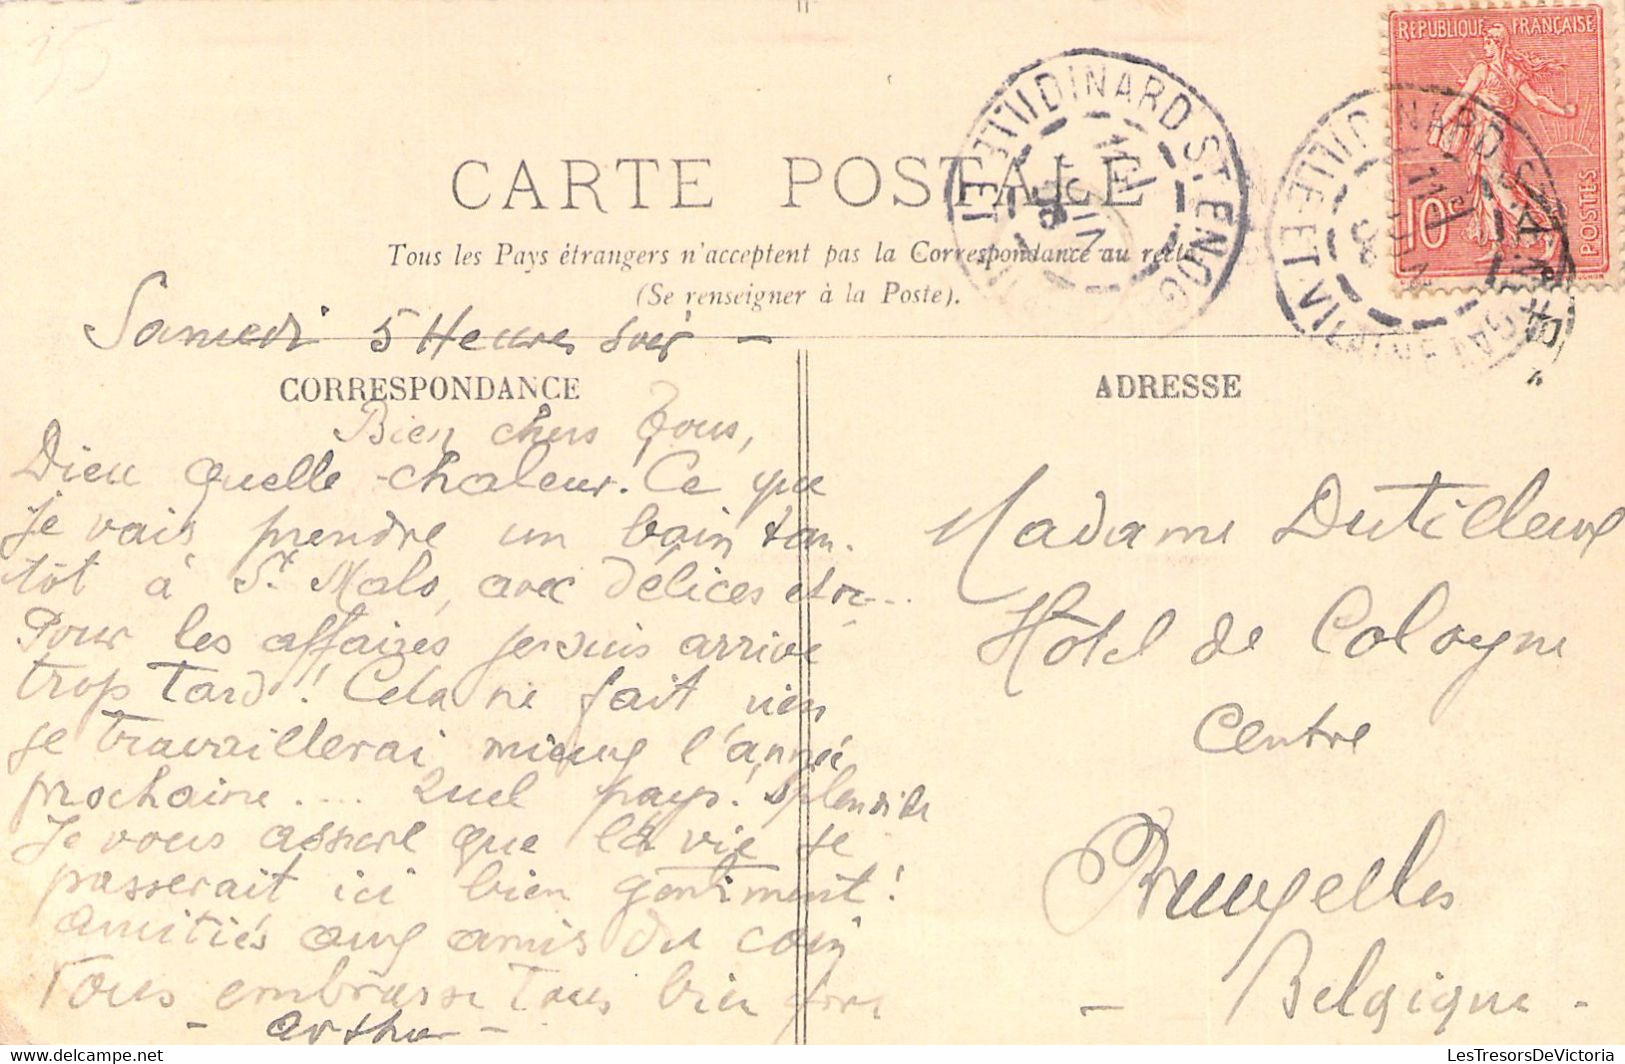 RÉPUBLIQUE FRANÇAISE
10c
POSTES
DINARD ST ENOGAT
ILLE-ET-VILAINE
CARTE POSTALE
Tous les Pays étrangers n'acceptent pas la Correspondance au recto
(Se renseigner à la Poste).
Samedi 5 Heures soir -
CORRESPONDANCE
Bien chers Tous,
Dieu quelle chaleur. Ce que
je vais prendre un bain tan-
tôt à St Malo, avec délices
Pour les affaires je suis arrivé
trop Tard ! Cela ne fait rien
je travaillerai mieux l'année
prochaine .... Quel pays ! Splendide
Je vous assure que la vie se
passerait ici bien gentiment !
amitiés aux amis du coin
Vous embrasse Tous bien fort
- arthur -
ADRESSE
Madame Dutilleux
Hôtel de Cologne
Centre
Bruxelles
- Belgique -
LesTresorsDeVictoria